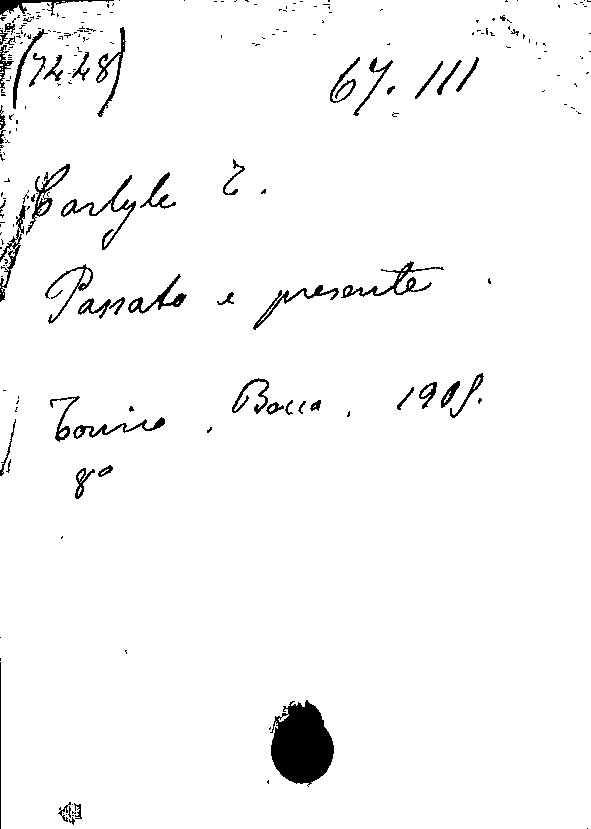 (7448) 67.111
Carlyle T.
Passato e presente.
Torino, Bocca, 1905.
8º